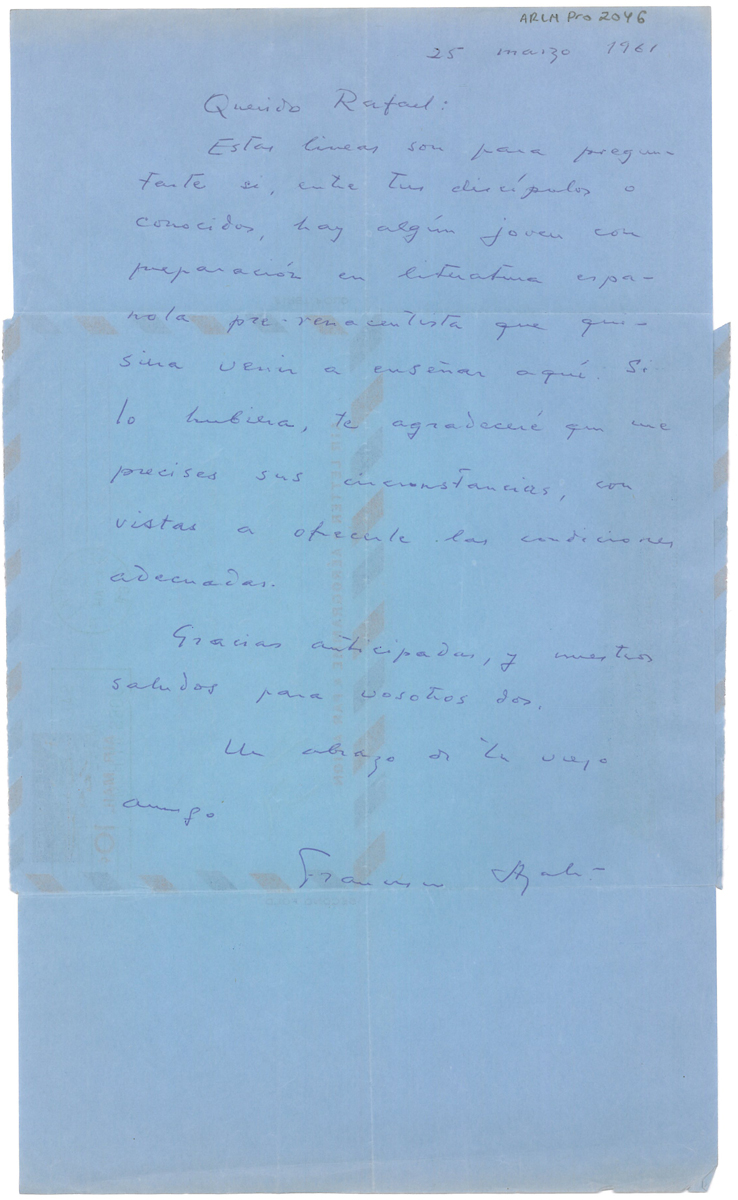 ARLM Pro 2046
25 marzo 1961
Querido Rafael:
Estas líneas son para pregun-
tarte si, entre tus discípulos o
conocidos, hay algún joven con
preparación en literatura espa-
ñola pre-renacentista que qui-
siera venir a enseñar aquí. Si
lo hubiera, te agradeceré que me
precises sus circunstancias, con
vistas a ofrecerle las condiciones
adecuadas.
Gracias anticipadas, y nuestros
saludos para vosotros dos.
Un abrazo de tu viejo
amigo
Francisco Ayala